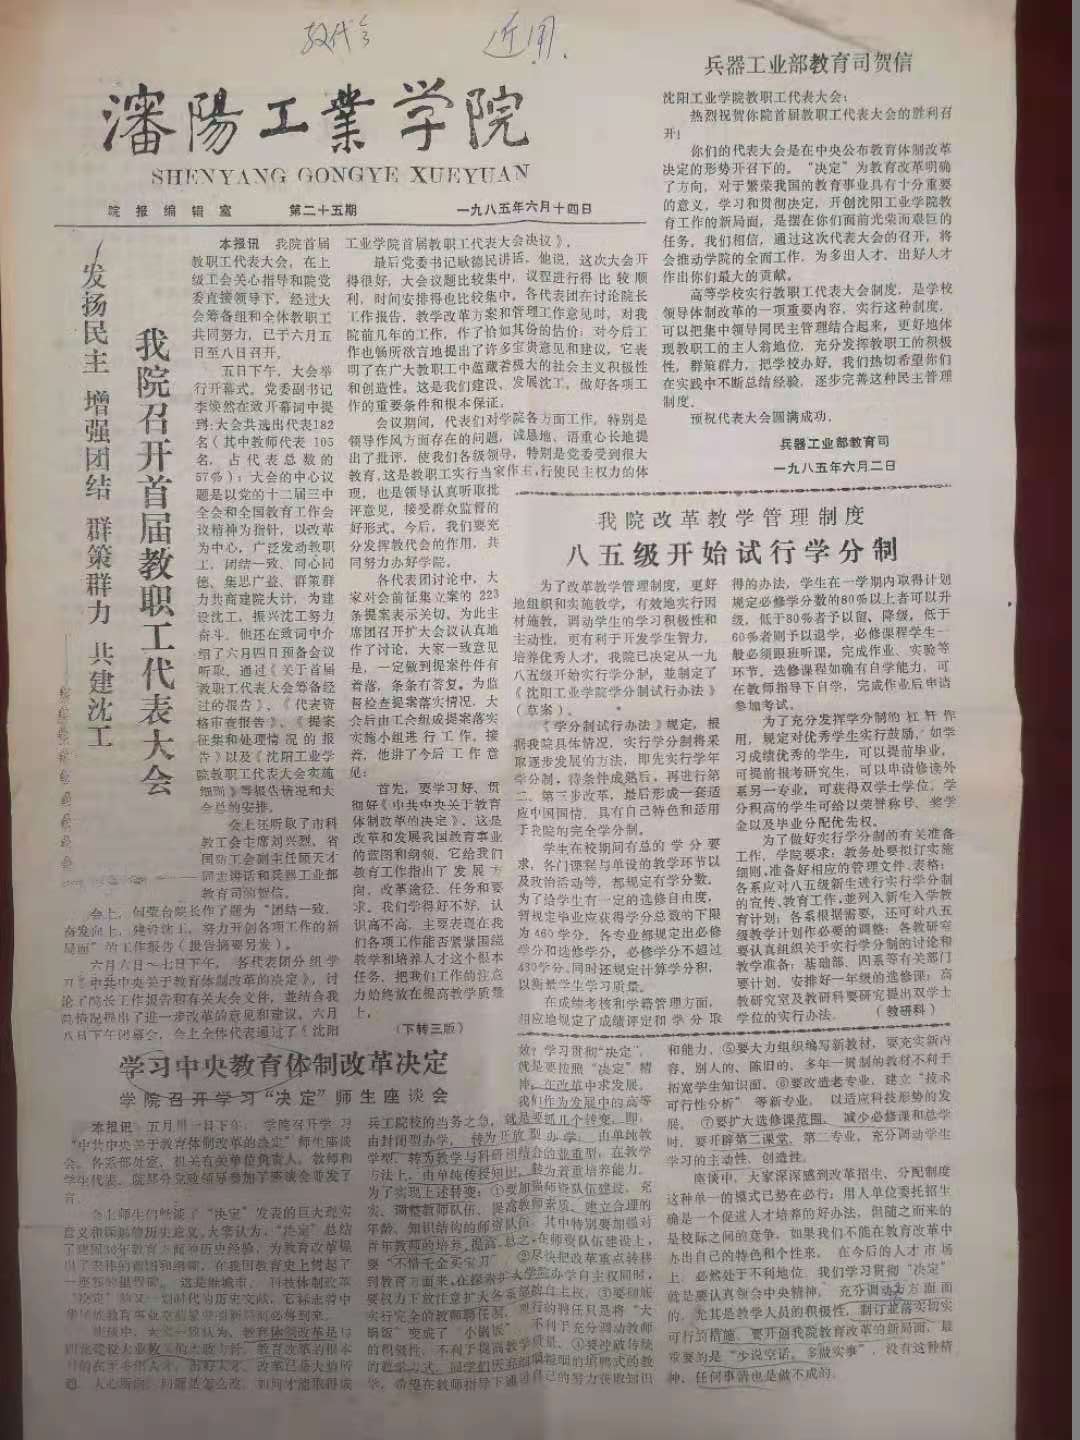 教代会 近闻.
瀋陽工業学院
SHENYANG GONGYE XUEYUAN
院报编辑室 第二十五期 一九八五年六月十四日
发扬民主 增强团结 群策群力 共建沈工
我院召开首届教职工代表大会
本报讯 我院首届
教职工代表大会，在上
级工会关心指导和院党
委直接领导下，经过大
会筹备组和全体教职工
共同努力，已于六月五
日至八日召开。
五日下午，大会举
行开幕式。党委副书记
李焕然在致开幕词中提
到：大会共选出代表182
名（其中教师代表 105
名，占代表总数的
57%）；大会的中心议
题是以党的十二届三中
全会和全国教育工作会
议精神为指针，以改革
为中心，广泛发动教职
工，团结一致、同心同
德、集思广益、群策群
力共商建院大计，为建
设沈工，振兴沈工努力
奋斗。他还在致词中介
绍了六月四日预备会议
听取、通过《关于首届
教职工代表大会筹备经
过的报告》、《代表资
格审查报告》、《提案
征集和处理情况的报
告》以及《沈阳工业学
院教职工代表大会实施
细则》等报告情况和大
会总的安排。
会上还听取了市科
教工会主席刘兴烈、省
国防工会副主任顾天才
同志讲话和兵器工业部
教育司的贺信。
会上，何荣台院长作了题为“团结一致，
奋发向上，建设沈工，努力开创各项工作的新
局面”的工作报告（报告摘要另发）。
六月六日～七日下午，各代表团分组学
习《中共中央关于教育体制改革的决定》，讨
论了院长工作报告和有关大会文件，并结合我
院情况提出了进一步改革的意见和建议。六月
八日下午闭幕会，会上全体代表通过了《沈阳
工业学院首届教职工代表大会决议》。
最后党委书记耿德民讲话。他说，这次大会开
得很好，大会议题比较集中，议程进行得比较顺
利，时间安排得也比较集中，各代表团在讨论院长
工作报告、教学改革方案和管理工作意见时，对我
院前几年的工作，作了恰如其份的估价；对今后工
作也畅所欲言地提出了许多宝贵意见和建议，它表
明了在广大教职工中蕴藏着极大的社会主义积极性
和创造性。这是我们建设、发展沈工，做好各项工
作的重要条件和根本保证。
会议期间，代表们对学院各方面工作，特别是
领导作风方面存在的问题，诚恳地、语重心长地提
出了批评，使我们各级领导，特别是党委受到很大
教育。这是教职工实行当家作主，行使民主权力的体
现，也是领导认真听取批
评意见，接受群众监督的
好形式。今后，我们要充
分发挥教代会的作用，共
同努力办好学院。
各代表团讨论中，大
家对会前征集立案的 223
条提案表示关切。为此主
席团召开扩大会议认真地
作了讨论，大家一致意见
是，一定做到提案件件有
着落，条条有答复。为监
督检查提案落实情况，大
会后由工会组成提案落实
实施小组进行工作。接
着，他讲了今后工作意
见：
首先，要学习好、贯
彻好《中共中央关于教育
体制改革的决定》，这是
改革和发展我国教育事业
的蓝图和纲领，它给我们
教育工作指出了发展方
向、改革途径、任务和要
求。我们学得好不好，认
识高不高，主要表现在我
们各项工作能否紧紧围绕
教学和培养人才这个根本
任务，把我们工作的注意
力始终放在提高教学质量
上。
（下转三版）
兵器工业部教育司贺信
沈阳工业学院教职工代表大会：
热烈祝贺你院首届教职工代表大会的胜利召
开！
你们的代表大会是在中央公布教育体制改革
决定的形势开召下的。“决定”为教育改革明确
了方向，对于繁荣我国的教育事业具有十分重要
的意义，学习和贯彻决定，开创沈阳工业学院教
育工作的新局面，是摆在你们面前光荣而艰巨的
任务，我们相信，通过这次代表大会的召开，将
会推动学院的全面工作，为多出人才，出好人才
作出你们最大的贡献。
高等学校实行教职工代表大会制度，是学校
领导体制改革的一项重要内容，实行这种制度，
可以把集中领导同民主管理结合起来，更好地体
现教职工的主人翁地位，充分发挥教职工的积极
性，群策群力，把学校办好，我们热切希望你们
在实践中不断总结经验，逐步完善这种民主管理
制度。
预祝代表大会圆满成功。
兵器工业部教育司
一九八五年六月二日
我院改革教学管理制度
八五级开始试行学分制
为了改革教学管理制度，更好
地组织和实施教学，有效地实行因
材施教，调动学生的学习积极性和
主动性，更有利于开发学生智力，
培养优秀人才，我院已决定从一九
八五级开始实行学分制，並制定了
《沈阳工业学院学分制试行办法》
（草案）。
《学分制试行办法》规定，根
据我院具体情况，实行学分制将采
取逐步发展的方法，即先实行学年
学分制，待条件成熟后，再进行第
二、第三步改革，最后形成一套适
应中国国情，具有自己特色和适用
于我院的完全学分制。
学生在校期间有总的学分要
求，各门课程与单设的教学环节以
及政治活动等，都规定有学分数。
为了给学生有一定的选修自由度，
暂规定毕业应获得学分总数的下限
为 460 学分，各专业都规定出必修
学分和选修学分，必修学分不超过
430学分，同时还规定计算学分积，
以衡量学生学习质量。
在成绩考核和学籍管理方面，
相应地规定了成绩评定和学分取
得的办法，学生在一学期内取得计划
规定必修学分数的80%以上者可以升
级，低于80%者予以留、降级，低于
60%者则予以退学，必修课程学生一
般必须跟班听课，完成作业、实验等
环节，选修课程如确有自学能力，可
在教师指导下自学，完成作业后申请
参加考试。
为了充分发挥学分制的杠杆作
用，规定对优秀学生实行鼓励，如学
习成绩优秀的学生，可以提前毕业，
可提前报考研究生，可以申请修读外
系另一专业，可获得双学士学位，学
分积高的学生可给以荣誉称号、奖学
金以及毕业分配优先权。
为了做好实行学分制的有关准备
工作，学院要求：教务处要拟订实施
细则，准备好相应的管理文件、表格；
各系应对八五级新生进行实行学分制
的宣传、教育工作，並列入新生入学教
育计划；各系根据需要，还可对八五
级教学计划作必要的调整；各教研室
要认真组织关于实行学分制的讨论和
教学准备；基础部、四系等有关部门
要计划、安排好一年级的选修课；高
教研究室及教研科要研究提出双学士
学位的实行办法。 （教研科）
学习中央教育体制改革决定
学院召开学习“决定”师生座谈会
本报讯 五月卅一日下午，学院召开学习
“中共中央关于教育体制改革的决定”师生座谈
会。各系部处室，机关有关单位负责人，教师和
学生代表，院部分党政领导参加了座谈会並发了
言。
会上师生们畅谈了“决定”发表的巨大现实
意义和深远的历史意义。大家认为，“决定”总结
了建国30年教育方面的历史经验，为教育改革提
兵工院校的当务之急，就是要抓几个转变，即：
由封闭型办学，转为开放型办学；由单纯教
学型，转为教学与科研相结合的並重型；在教学
方法上，由单纯传授知识，转为着重培养能力。
为了实现上述转变：①要加强师资队伍建设，充
实、调整教师队伍，提高教师素质，建立合理的
年龄、知识结构的师资队伍，其中特别要加强对
青年教师的培养、提高。总之，在师资队伍建设上，
要“不惜千金买宝刀”。②尽快把改革重点转移
效？学习贯彻“决定”，
就是要按照“决定”精
神，在改革中求发展。
我们作为发展中的高等
和能力。⑤要大力组织编写新教材，要充实新内
容，别人的、陈旧的、多年一贯制的教材不利于
拓宽学生知识面。⑥要改造老专业，建立“技术
可行性分析”等新专业，以适应科技形势的发
展。⑦要扩大选修课范围，减少必修课和总学
时，要开辟第二课堂、第二专业，充分调动学生
学习的主动性、创造性。
座谈中，大家深深感到改革招生、分配制度
这种单一的模式已势在必行；用人单位委托招生
确是一个促进人才培养的好办法，但随之而来的
是校际之间的竞争，如果我们不能在教育改革中
办出自己的特色和个性来，在今后的人才市场
上，必然处于不利地位。我们学习贯彻“决定”
就是要认真领会中央精神，充分调动方方面面
的，尤其是教学人员的积极性，制订並落实切实
可行的措施。要开创我院教育改革的新局面，最
重要的是“少说空话，多做实事”，没有这种精
神，任何事情也是做不成的。